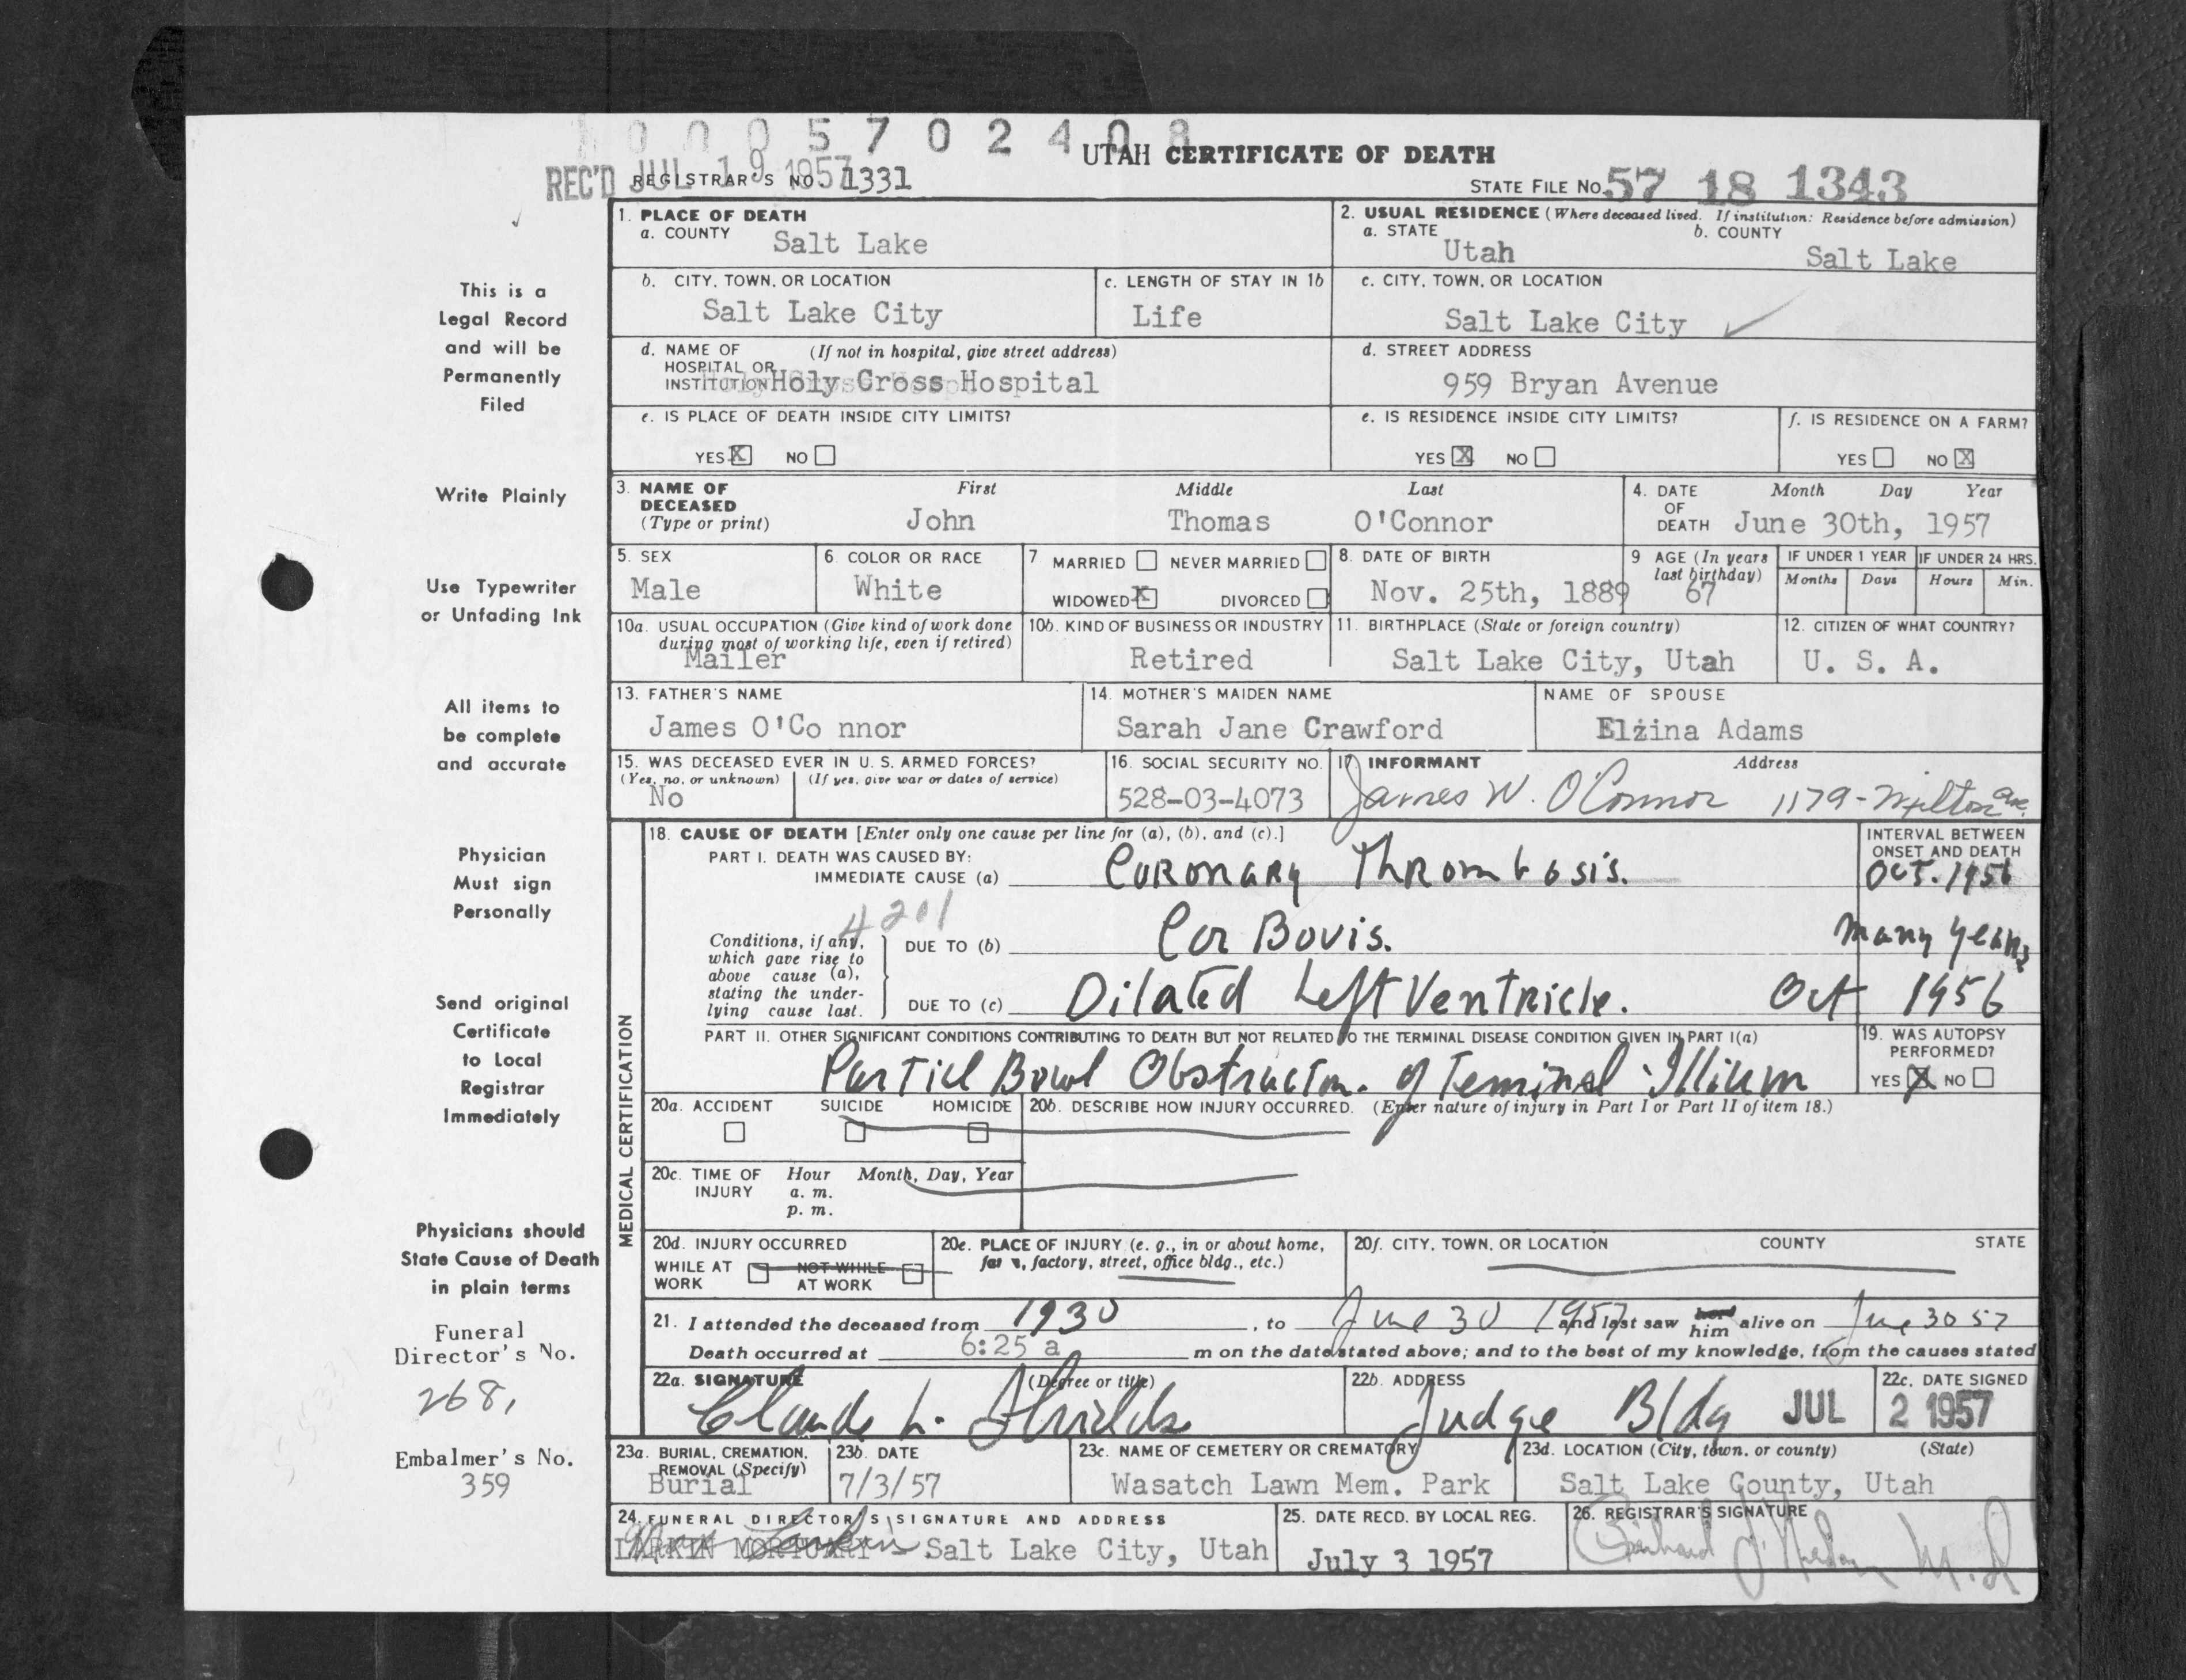 0 0 0 5 7 0 2 4 0 8
UTAH CERTIFICATE OF DEATH
REC'D JUL 19 1957
REGISTRAR'S NO. 1331
STATE FILE NO. 57 18 1343
1. PLACE OF DEATH
a. COUNTY Salt Lake
2. USUAL RESIDENCE (Where deceased lived. If institution: Residence before admission)
a. STATE Utah b. COUNTY Salt Lake
b. CITY, TOWN, OR LOCATION Salt Lake City
c. LENGTH OF STAY IN 1b Life
c. CITY, TOWN, OR LOCATION Salt Lake City
d. NAME OF HOSPITAL OR INSTITUTION (If not in hospital, give street address) Holy Cross Hospital
d. STREET ADDRESS 959 Bryan Avenue
e. IS PLACE OF DEATH INSIDE CITY LIMITS?
YES X NO
e. IS RESIDENCE INSIDE CITY LIMITS?
YES X NO
f. IS RESIDENCE ON A FARM?
YES NO X
3. NAME OF DECEASED (Type or print) First Middle Last
John Thomas O'Connor
4. DATE OF DEATH Month Day Year
June 30th, 1957
5. SEX Male
6. COLOR OR RACE White
7 MARRIED NEVER MARRIED
WIDOWED X DIVORCED
8. DATE OF BIRTH Nov. 25th, 1889
9 AGE (In years last birthday) 67
IF UNDER 1 YEAR Months Days
IF UNDER 24 HRS. Hours Min.
10a. USUAL OCCUPATION (Give kind of work done during most of working life, even if retired) Mailer
10b. KIND OF BUSINESS OR INDUSTRY Retired
11. BIRTHPLACE (State or foreign country) Salt Lake City, Utah
12. CITIZEN OF WHAT COUNTRY? U. S. A.
13. FATHER'S NAME James O'Co nnor
14. MOTHER'S MAIDEN NAME Sarah Jane Crawford
NAME OF SPOUSE Elzina Adams
15. WAS DECEASED EVER IN U. S. ARMED FORCES?
(Yes, no, or unknown) (If yes, give war or dates of service)
No
16. SOCIAL SECURITY NO. 528-03-4073
17 INFORMANT Address
James W. O'Connor 1179 - Milton Ave.
MEDICAL CERTIFICATION
18. CAUSE OF DEATH [Enter only one cause per line for (a), (b), and (c).]
INTERVAL BETWEEN ONSET AND DEATH
PART I. DEATH WAS CAUSED BY:
IMMEDIATE CAUSE (a) Coronary Thrombosis. Oct. 1956
4201
Conditions, if any, which gave rise to above cause (a), stating the underlying cause last.
DUE TO (b) Cor Bovis. Many years
DUE TO (c) Dilated Left Ventricle. Oct 1956
PART II. OTHER SIGNIFICANT CONDITIONS CONTRIBUTING TO DEATH BUT NOT RELATED TO THE TERMINAL DISEASE CONDITION GIVEN IN PART I(a)
Partiel Bowl Obstruction. of Teminal Illium
19. WAS AUTOPSY PERFORMED?
YES X NO
20a. ACCIDENT SUICIDE HOMICIDE
20b. DESCRIBE HOW INJURY OCCURRED. (Enter nature of injury in Part I or Part II of item 18.)
20c. TIME OF INJURY Hour Month, Day, Year
a. m.
p. m.
20d. INJURY OCCURRED
WHILE AT WORK NOT WHILE AT WORK
20e. PLACE OF INJURY (e. g., in or about home, farm, factory, street, office bldg., etc.)
20f. CITY, TOWN, OR LOCATION COUNTY STATE
21. I attended the deceased from 1930, to June 30 1957 and last saw her him alive on June 30 57
Death occurred at 6:25 a m on the date stated above; and to the best of my knowledge, from the causes stated
22a. SIGNATURE (Degree or title)
Claude L. Shields
22b. ADDRESS
Judge Bldg
22c. DATE SIGNED
JUL 2 1957
23a. BURIAL, CREMATION, REMOVAL (Specify) Burial
23b. DATE 7/3/57
23c. NAME OF CEMETERY OR CREMATORY Wasatch Lawn Mem. Park
23d. LOCATION (City, town, or county) (State)
Salt Lake County, Utah
24. FUNERAL DIRECTOR'S SIGNATURE AND ADDRESS
LARKIN MORTUARY Salt Lake City, Utah
25. DATE RECD. BY LOCAL REG. July 3 1957
26. REGISTRAR'S SIGNATURE
M.D
This is a
Legal Record
and will be
Permanently
Filed
Write Plainly
Use Typewriter
or Unfading Ink
All items to
be complete
and accurate
Physician
Must sign
Personally
Send original
Certificate
to Local
Registrar
Immediately
Physicians should
State Cause of Death
in plain terms
Funeral
Director's No.
268,
Embalmer's No.
359